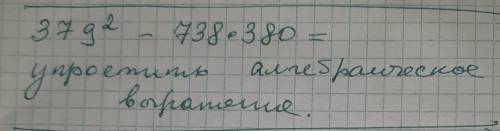 379² - 738•380 =
упростить алгебраическое
выражение.